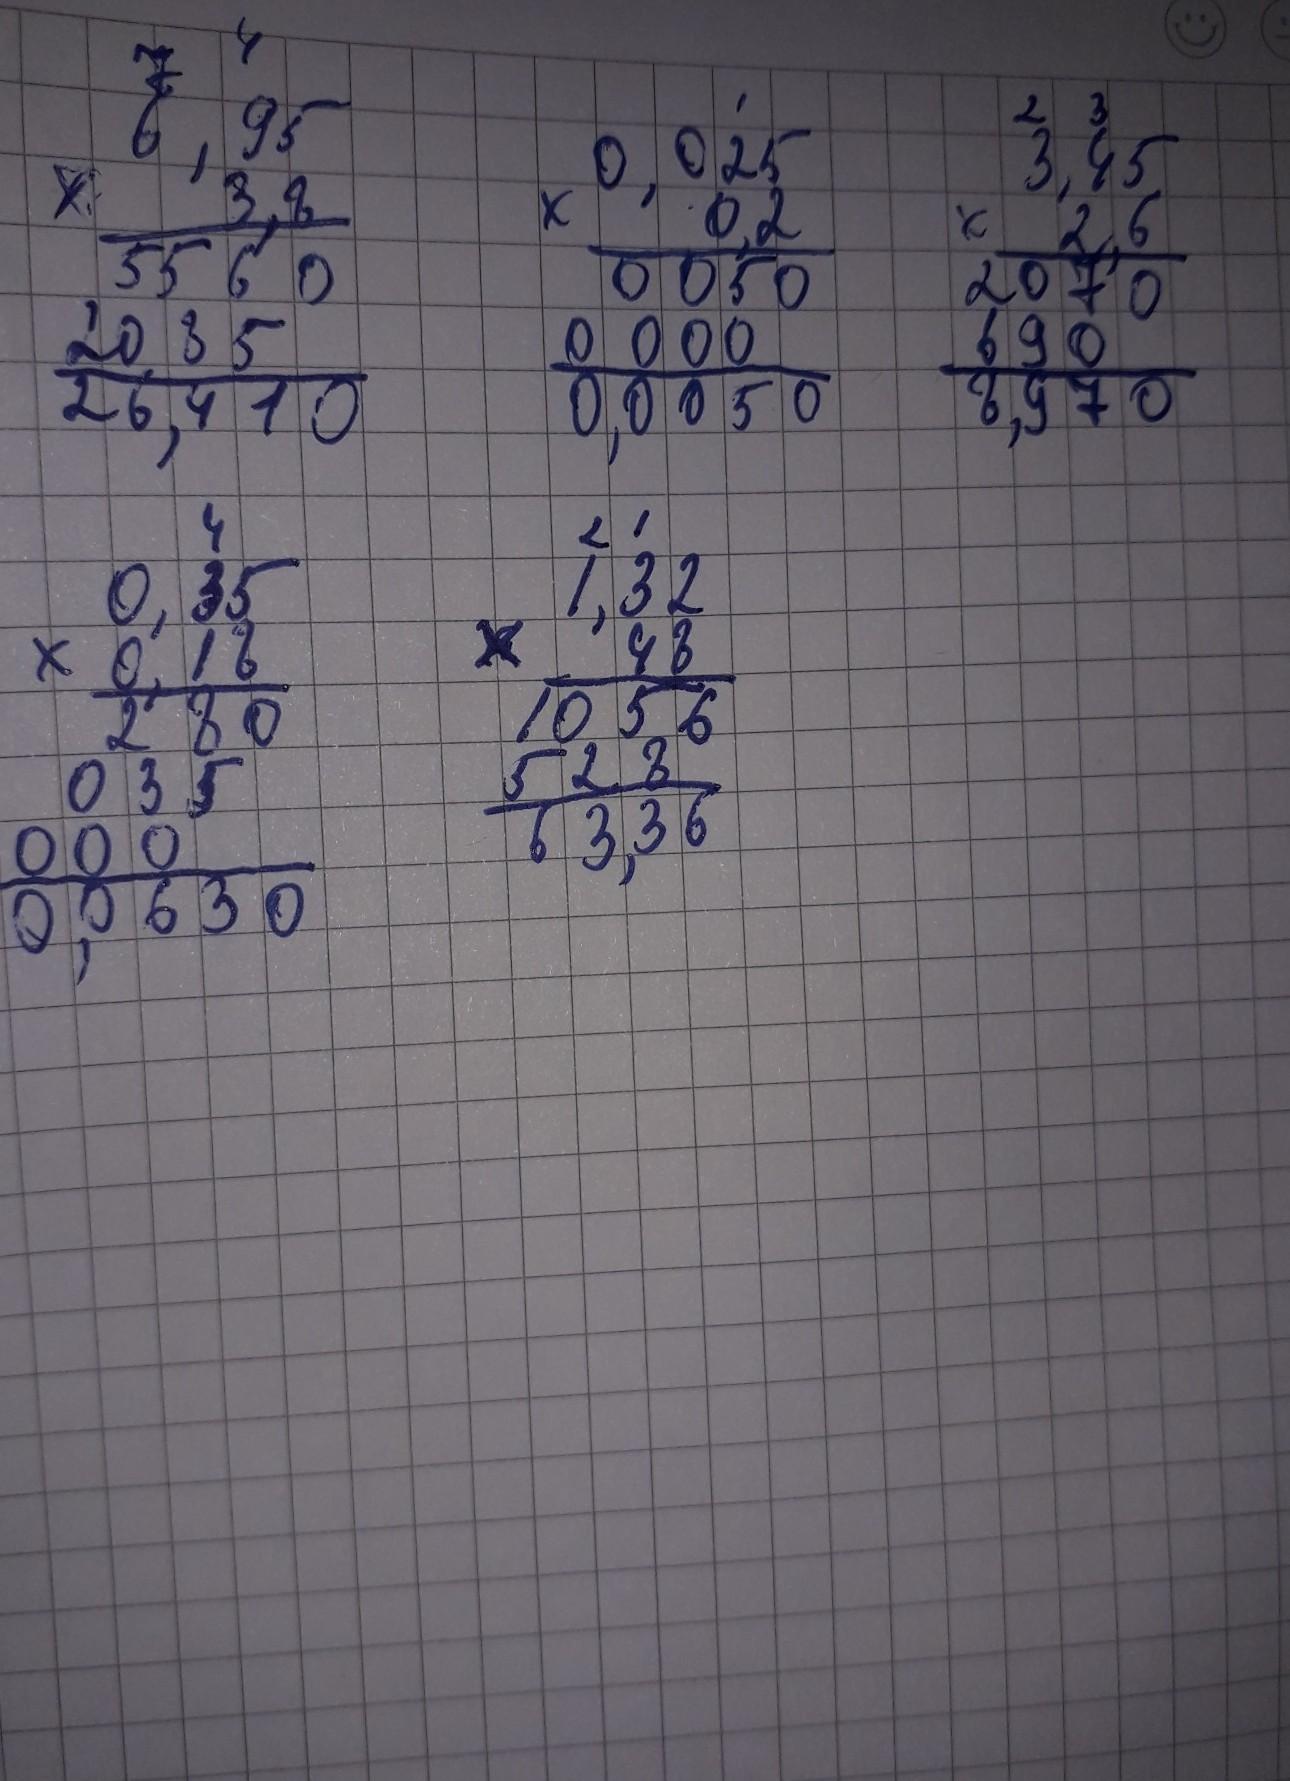 7 4
6,95
x 3,8
5560
1
2085
26,410
1
0,025
x 0,2
0050
0000
0,0050
2 3
3,45
x 2,6
2070
690
8,970
4
0,35
x 0,18
280
035
000
0,0630
2 1
1,32
x 48
1056
528
63,36